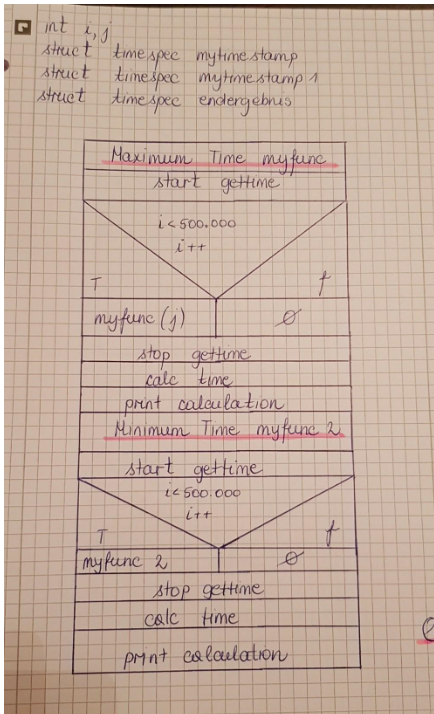 int i, j
struct timespec mytimestamp
struct timespec mytimestamp 1
struct timespec endergebnis
Maximum Time myfunc
start gettime
i < 500.000
i++
T f
myfunc (j) ∅
stop gettime
calc time
print calculation
Minimum Time myfunc 2
start gettime
i < 500.000
i++
T f
myfunc 2 ∅
stop gettime
calc time
print calculation